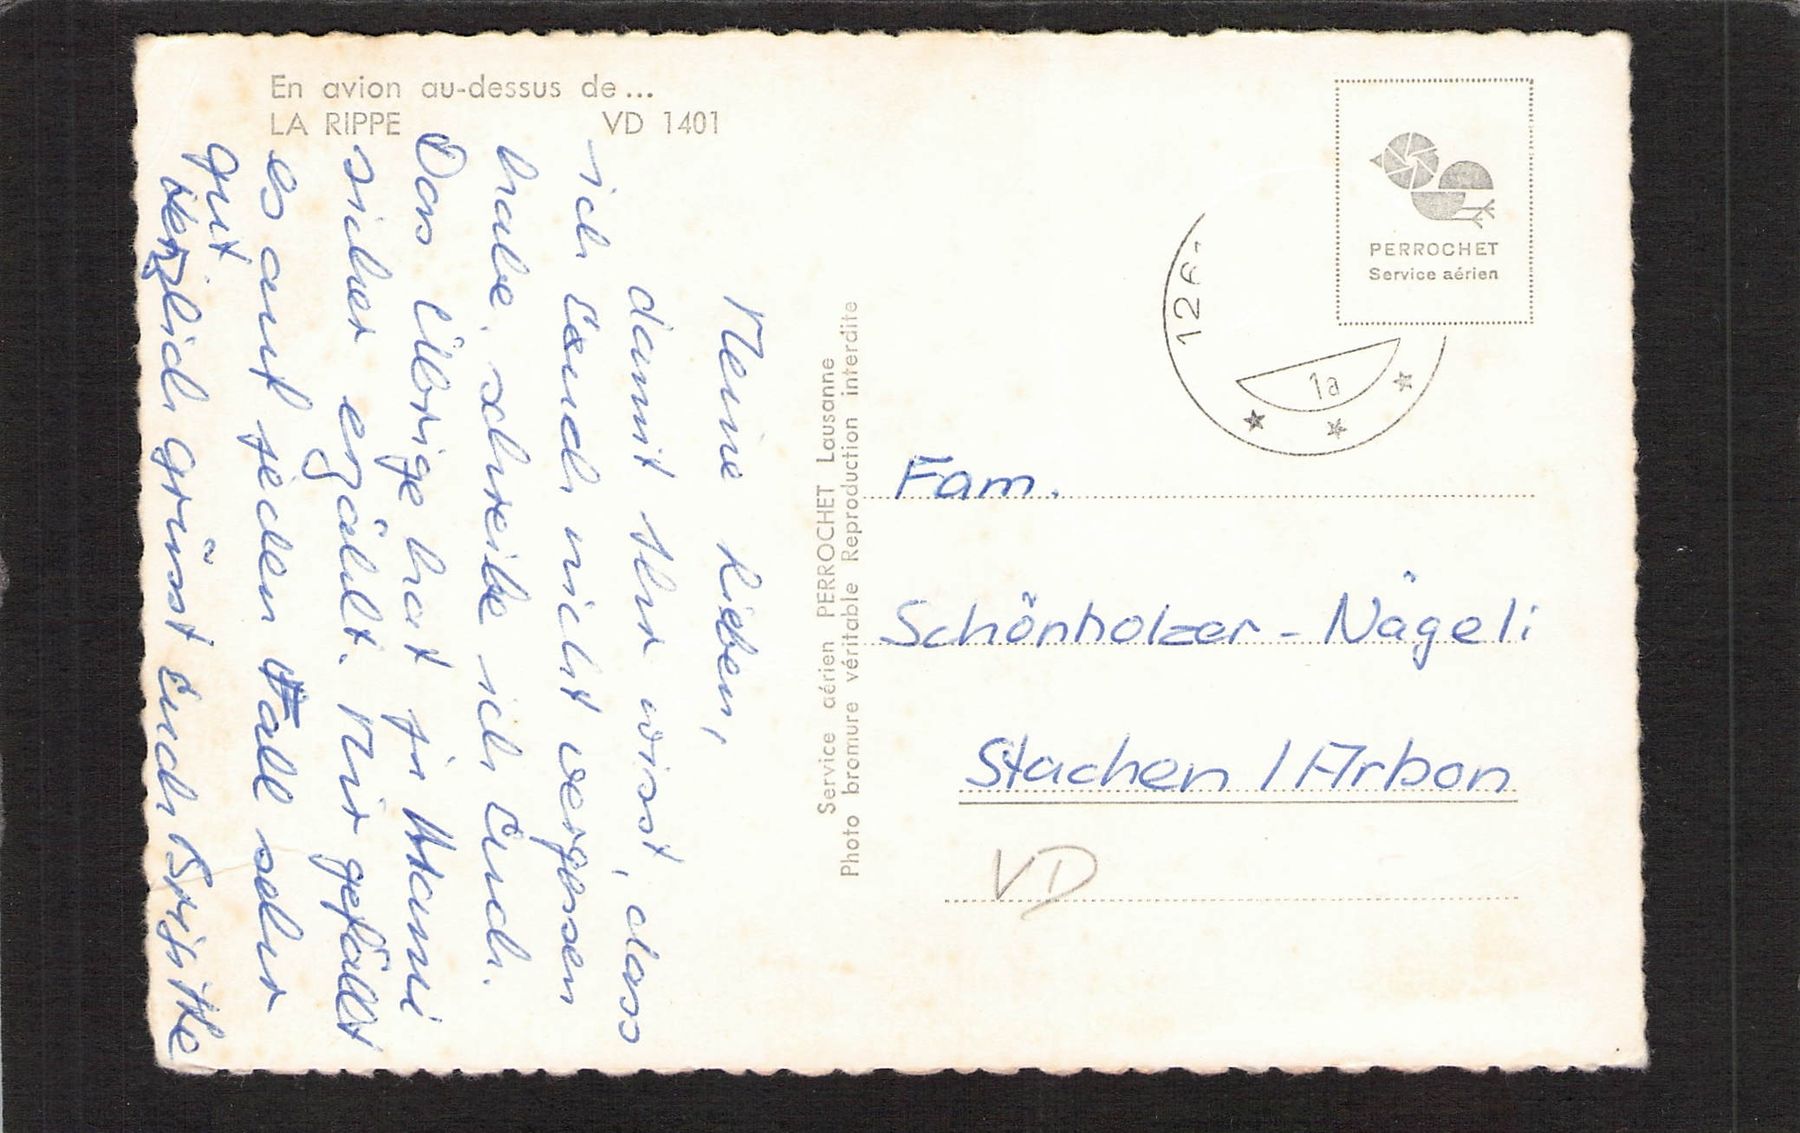 En avion au-dessus de...
LA RIPPE VD 1401
Meine Lieben,
damit Ihr wisst, dass
ich Euch nicht vergessen
habe, schreibe ich Euch.
Das Übrige hat ja Mami
sicher erzählt. Mir gefällt
es auf jeden Fall sehr
gut.
Herzlich grüsst Euch Brigitte
Service aérien PERROCHET Lausanne
Photo bromure véritable Reproduction interdite
PERROCHET
Service aérien
12 6 -
1a
Fam.
Schönholzer - Nägeli
Stachen / Arbon
VD